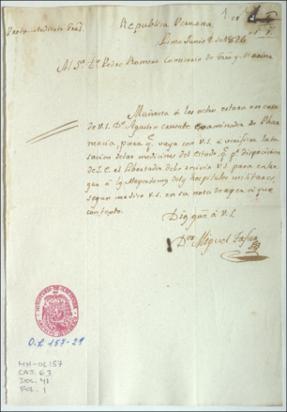 Republica Peruana
Lima Junio 8 de 1826
Al Sor Dn Pedro Romero Comisario de Gra y Marina
Mañana á las ocho estara en casa
de V.S. Dn Agustin examinador de Phar
macia, para q. vaya con V.S. á verificar la ta
sacion de las medicinas del Estado q. pr disposicion
de S.E. el Libertador debe V.S. para
gar á los de los hospitales militares,
segun me dice V.S. en su nota de aper á que
contexto.
Dios gue á V.S.
Dor Miguel Tafur
O.L. 157-29
MH-OL 157
CAJ. 63
DOC. 41
FOL. 1